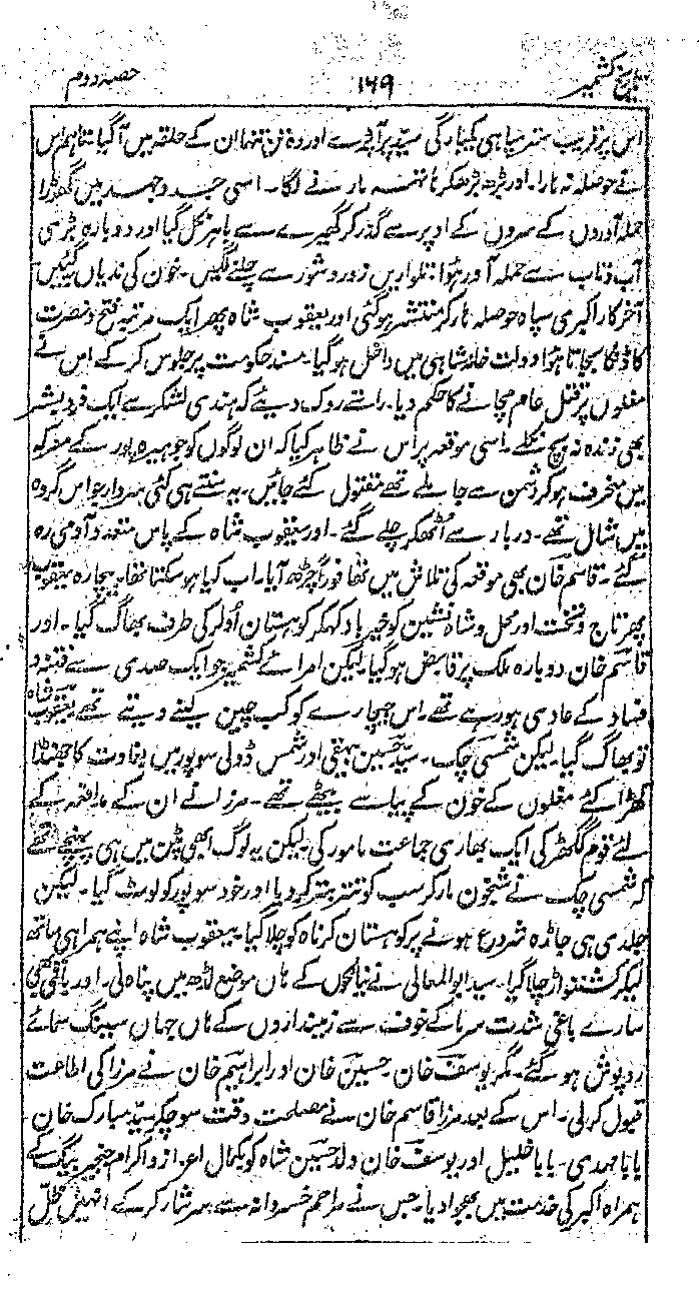 تاریخ کشمیر ۱۴۹ حصہ دوم
اس پر قریب ستر سپاہی یکبارگی سید پر آپڑے اور وہ تن تنہا ان کے حلقہ میں آگیا۔ تاہم اس
نے حوصلہ نہ ہارا۔ اور بڑھ بڑھکر ہاتھ مارنے لگا۔ اسی جد وجہد میں گھوڑا
حملہ آوروں کے سروں کے اوپر سے گذر کر گھیرے سے باہر نکل گیا اور دوبارہ بڑی
آب وتاب سے حملہ آور ہؤا۔ تلواریں زور وشور سے چلنے لگیں۔ خون کی ندیاں
آخر کار اکبری سپاہ حوصلہ ہار کر منتشر ہوگئی اور یعقوب شاہ پھر ایک مرتبہ فتح ونصرت
کا ڈنکا بجاتا ہؤا دولت خانہ شاہی میں داخل ہوگیا۔ مسند حکومت پر جلوس کرکے اس نے
مغلوں پر قتل عام مچانے کا حکم دیا۔ راستے روک دیئے کہ ہندی لشکر سے ایک فرد بشر
بھی زندہ نہ بچ نکلے۔ اسی موقعہ پر اس نے ظاہر کیا کہ ان لوگوں کو جو ہیرہ پور کے معرکہ
میں منحرف ہوکر دشمن سے جا ملے تھے مقتول کئے جائیں۔ یہ سنتے ہی کئی سردار جو اس گروہ
میں شامل تھے۔ دربار سے اٹھکر چلے گئے۔ اور یعقوب شاہ کے پاس متعدد آدمی رہ
گئے۔ قاسم خان بھی موقعہ کی تلاش میں تھا فوراً چڑھ آیا۔ اب کیا ہوسکتا تھا۔ بیچارہ یعقوب
پھر تاج وتخت اور محل وشاہ نشین کو خیر باد کہکر کوہستان اولر کی طرف بھاگ گیا۔ اور
قاسم خان دوبارہ ملک پر قابض ہوگیا۔ لیکن امرائے کشمیر جو ایک صدی سے فتنہ و
فساد کے عادی ہورہے تھے۔ اس بیچارے کو کب چین لینے دیتے تھے یعقوب شاہ
تو بھاگ گیا۔ لیکن شمسی چک۔ سید حسین بیہقی اور شمس ڈولی سوپور میں بغاوت کا جھنڈا
کھڑا کئے مغلوں کے خون کے پیاسے بیٹھے تھے۔ مرزا نے ان کے مدافعہ کے
لئے قوم گکھڑ کی ایک بھاری جماعت مامور کی۔ لیکن یہ لوگ ابھی پٹن میں ہی پہنچے تھے
کہ شمسی چک نے شبخون مار کر سب کو تتر بتر کردیا اور خود سوپور کو لوٹ گیا۔ لیکن
جلدی ہی جاڑہ شروع ہونے پر کوہستان کرناہ کو چلا گیا۔ یعقوب شاہ اپنے ہمراہی ساتھ
لیکر کشتواڑ چلا گیا۔ سید ابوالمعالی نے کے ہاں موضع لڈھ میں پناہ لی۔ اور باقی بھی
سارے باغی شدت سرما کے خوف سے زمینداروں کے ہاں جہاں سینگ سمائے
روپوش ہوگئے۔ مگر یوسف خان۔ حسین خان اور ابراہیم خان نے مرزا کی اطاعت
قبول کرلی۔ اس کے بعد مرزا قاسم خان نے مصلحت وقت سوچکر سید مبارک خان
بابا مہدی۔ بابا خلیل اور یوسف خان ولد حسین شاہ کو بکمال اعزاز واکرام بیگ کے
ہمراہ اکبر کی خدمت میں بھجوادیا۔ جس نے مراحم خسروانہ سے سرشار کرکے انہیں